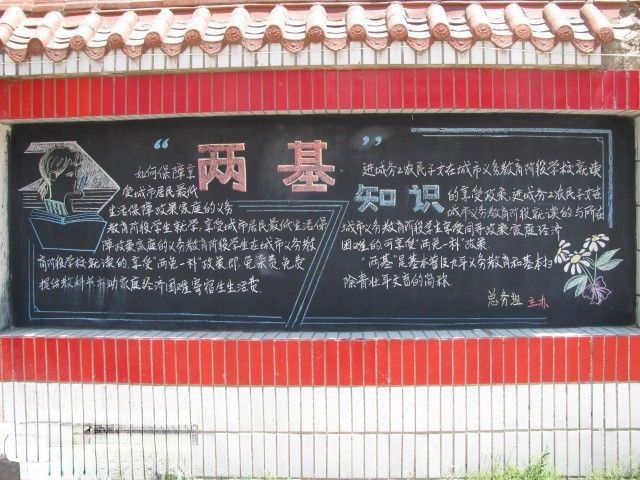 “两基”
知识
如何保障享
受城市居民最低
生活保障政策家庭的义务
教育阶段学生就学,享受城市居民最低生活保
障政策家庭的义务教育阶段学生在城市义务教
育阶段学校就读的,享受“两免一补”政策即:免杂费,免费
提供教科书补助家庭经济困难寄宿生生活费
进城务工农民子女在城市义务教育阶段学校就读
的享受政策:进城务工农民子女在
城市义务教育阶段就读的与所在
城市义务教育阶段学生享受同等政策家庭经济
困难的可享受“两免一补”政策
“两基”是基本普及九年义务教育和基本扫
除青壮年文盲的简称
总务组 主办